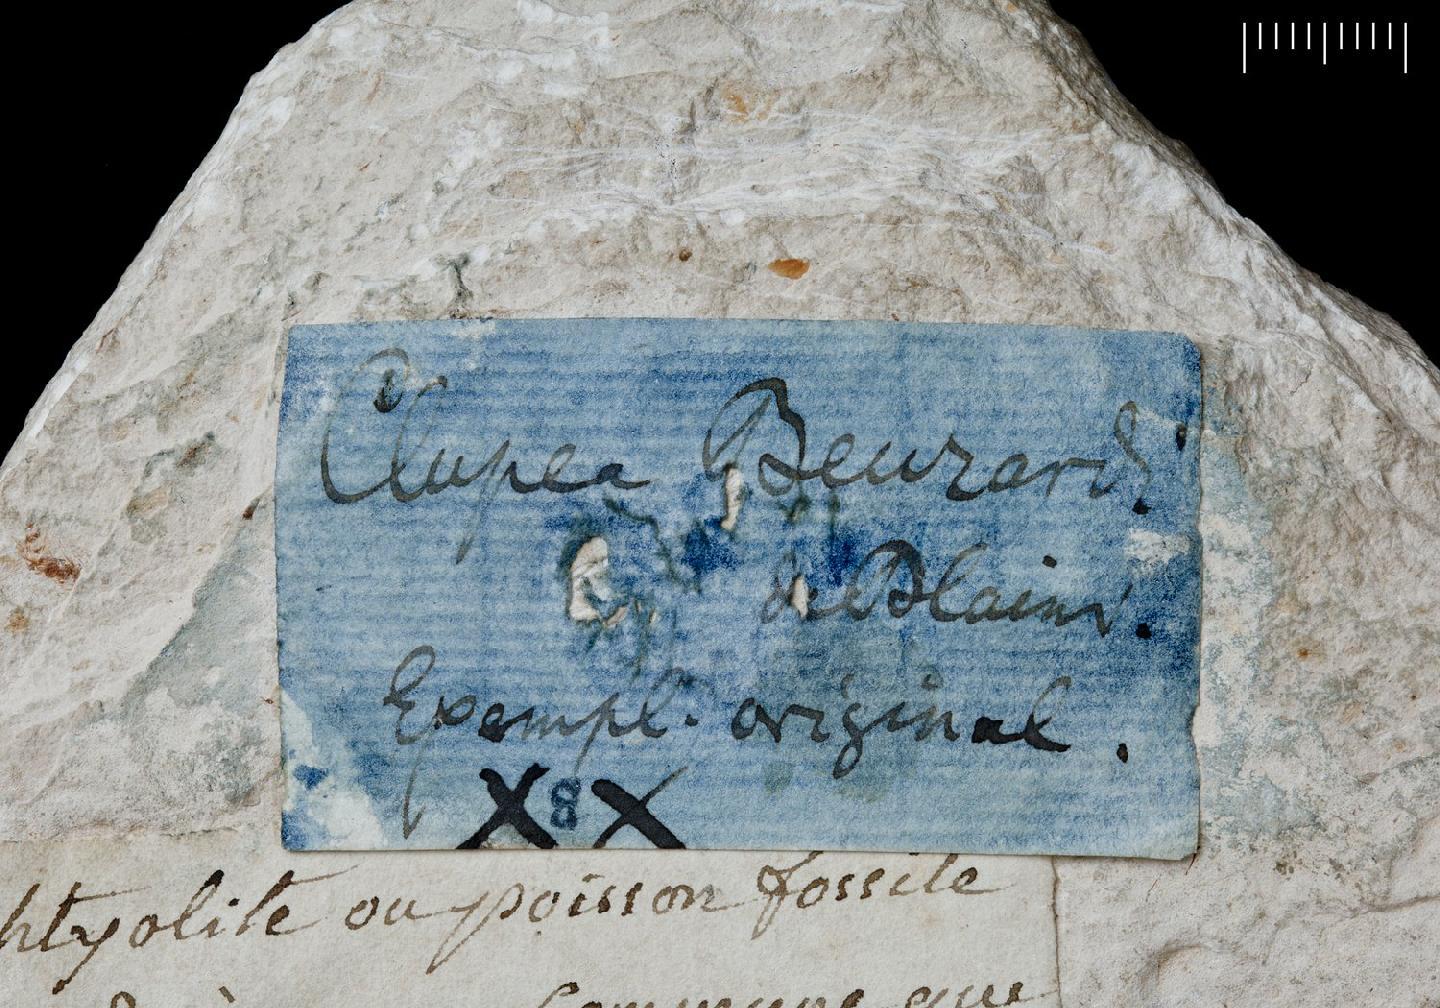 Clupea Beurardi
de Blainv.
Exempl. original.
X8X
htyolite ou poisson fossile
commune que